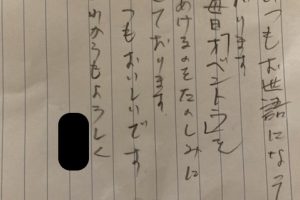 いつもお世話になっ
おります
毎日オベントウを
あけるのをたのしみに
しております
つもおいしいです
れからもよろしく